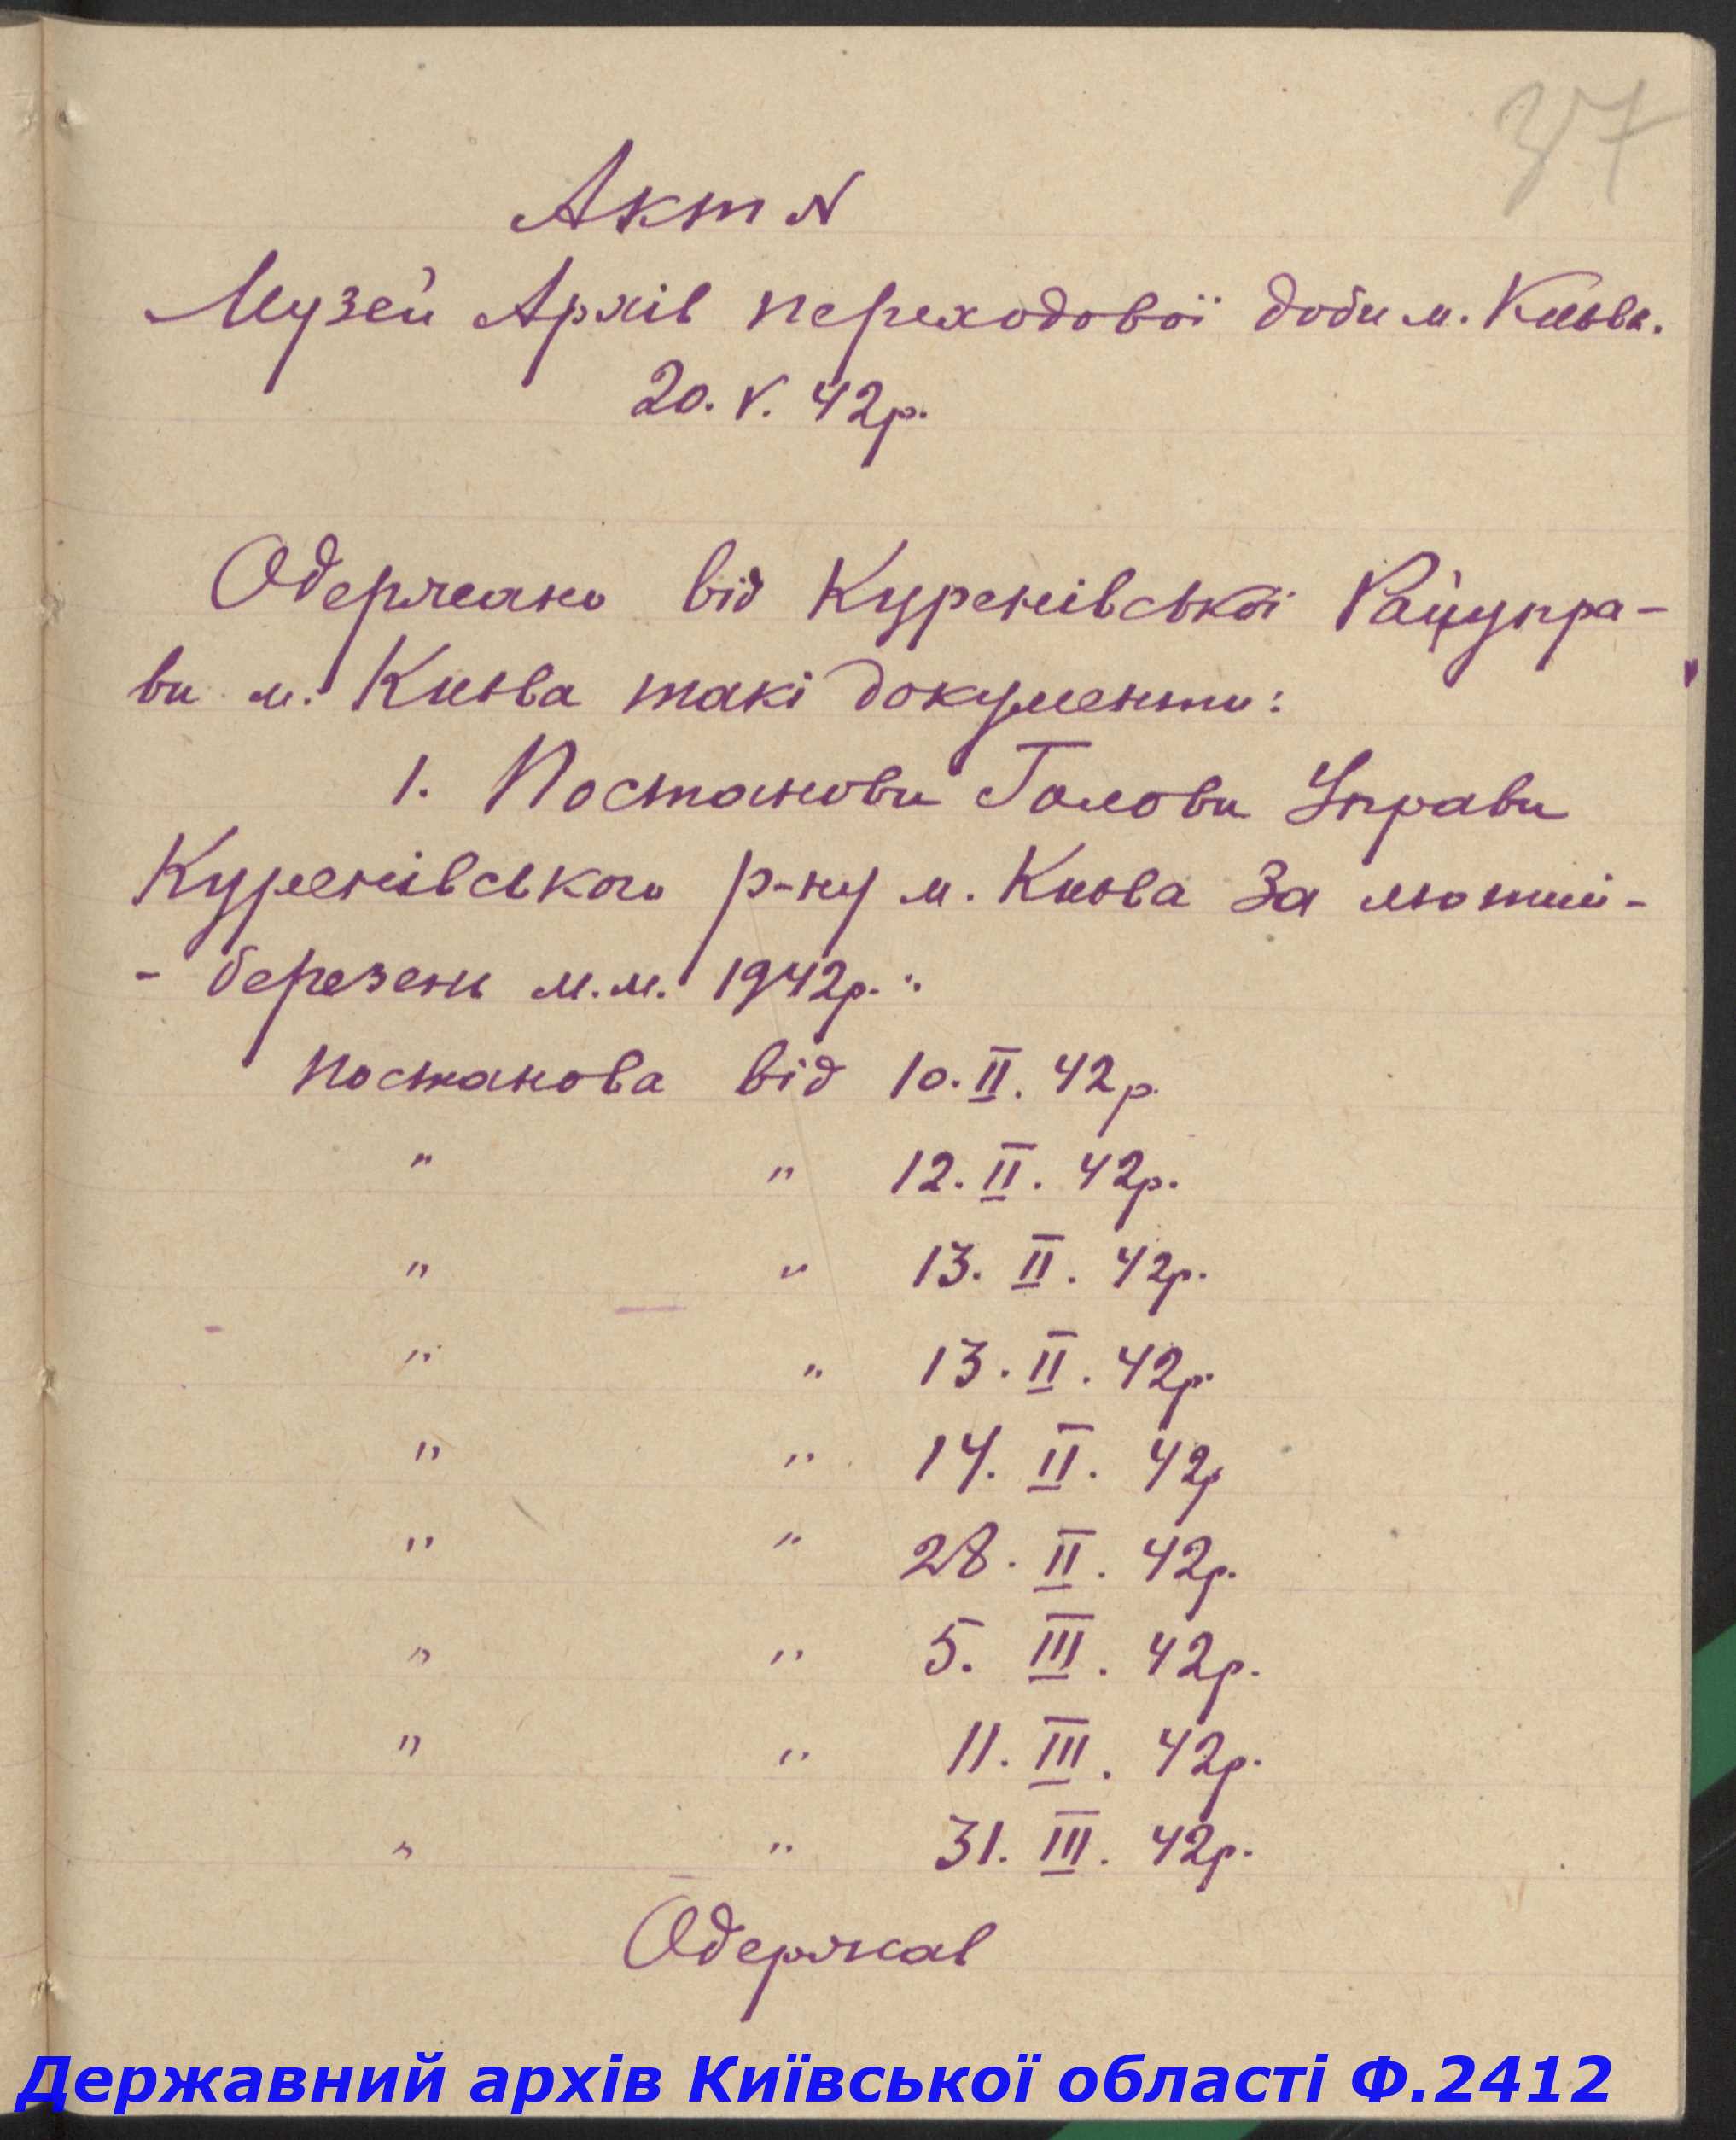 37
Акт №
Музей Архів переходової доби м. Київа.
20. V. 42р.
Одержано від Куренівської Райупра-
ви м. Київа такі документи:
1. Постанови Голови Управи
Куренівського р-ну м. Київа за лютий-
- березень м.м. 1942р.:
Постанова від 10. II. 42р.
" " 12. II. 42р.
" " 13. II. 42р.
" " 13. II. 42р.
" " 14. II. 42р
" " 28. II. 42р.
" " 5. III. 42р.
" " 11. III. 42р.
" " 31. III. 42р.
Одержав
Державний архів Київської області Ф.2412